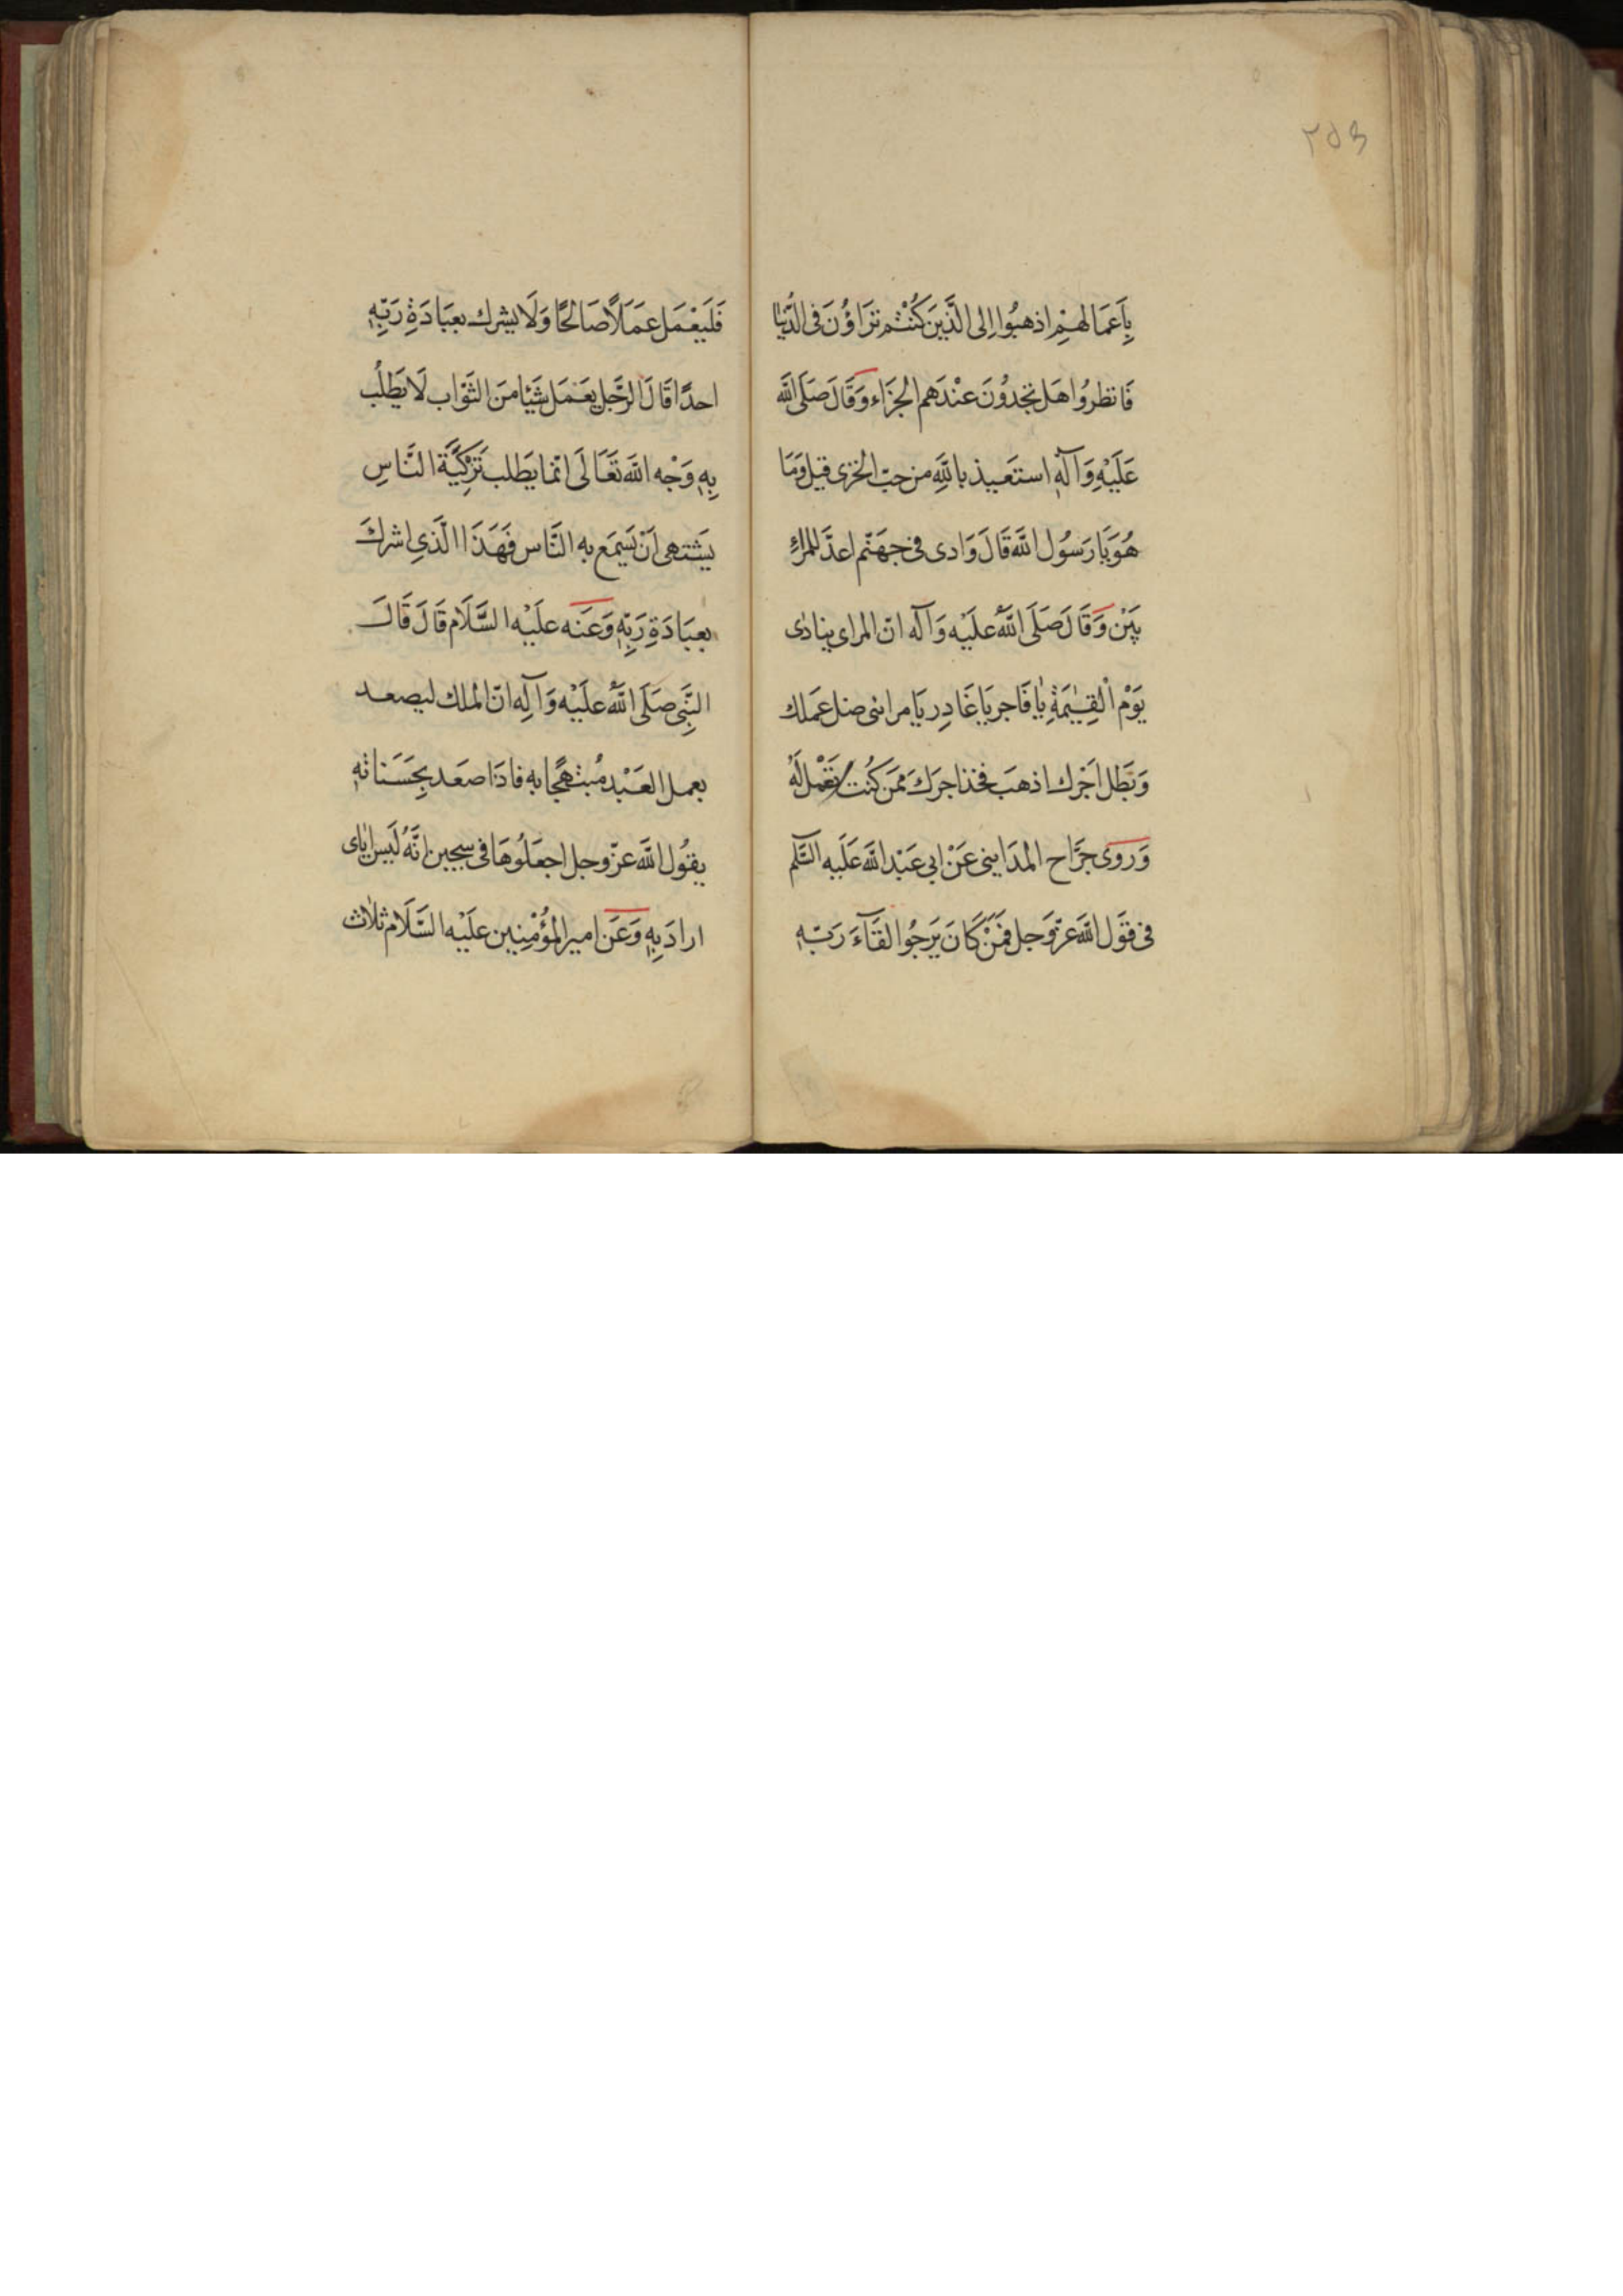 ٢٥٣
بِاَعمَالهِمْ اذهبُوا اِلى الَّذَّينَ كُنْتُم تَرَاؤُنَ فى الدُّنْيا
فَانظرُوا هَل تجدوُنَ عنْدَهم الجزَاء وَقَالَ صَلىَ اللَّه
عَلَيْهِ وَآلهِ استَعَيذ باللَّهِ من حبّ الخزى قيل وَمَا
هُوَ يَا رَسُول اللَّه قَالَ وَادى فى جهَنّم اعدّ للمراءِ
يَيْن وَقَالَ صَلىَ اللَّهُ علَيْه وَآله انّ المراى ينادى
يَوْم الْقِيٰمَةِ يٰا فَاجر يَا غَادِر يَا مرائى ضل عَملك
وَبَطل اَجْرك اذهبَ فخذ اجرَكَ ممَن كُنت تَعْمل لَهُ
وَرَوى جَرَّاح المدَاينى عَنْ ابى عَبْد اللَّه عَلَيه السَّلم
فى قوَل اللَّه عزّ وَجل فمَنْ كَانَ يَرجُوا لقَآءَ رَبّهِ
فَلَيَعْمَل عمَلاً صَالحًا وَلَا يشرك بعبَادَةِ رَبِّهِ
احدًا قَالَ الرَّجل يعَمَل شَيْا منَ الثَوْاب لَا يَطلُب
بِهِ وَجْه اللَّه تَعَالَى انّما يَطلب تَزْكِيَّة النَّاسِ
يَشتهى اَنْ يَسَمَع به النَّاس فَهَذَا الَّذىِ اشركَ
بعبَادَةِ رَبِّهِ وَعَنه علَيْه السَّلَام قَالَ قَالَ
النَّبِى صَلَى اللَّهُ علَيْه وَآلِه انّ الملك ليصعد
بعمل العَبْد مُبتهجًا به فاذَا صعَد بِحَسَناتهِ
يقوُل اللَّه عزّ وجل اجعَلُوهَا فى سجين انَّهُ لَيسَ ايٰاى
ارادَ بِهِ وَعَن امير المؤُمْنِين علَيْه السَّلَام ثلاث